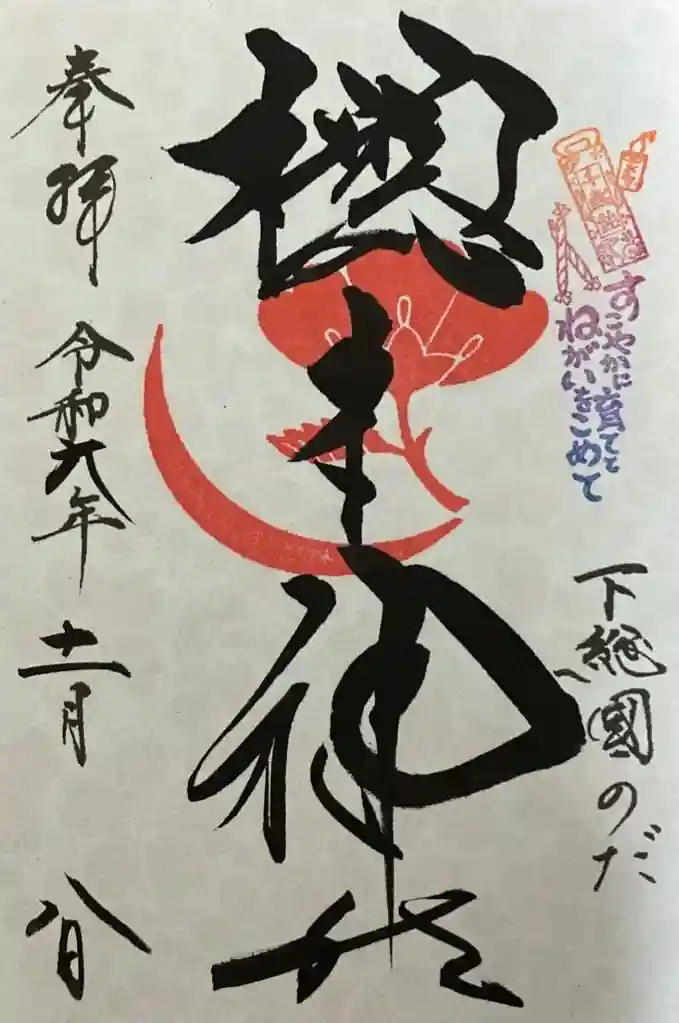 千歳飴
すこやかに育てと
ねがいをこめて
下総國のだ
櫻木神社
奉拝 令和六年 十一月 八日